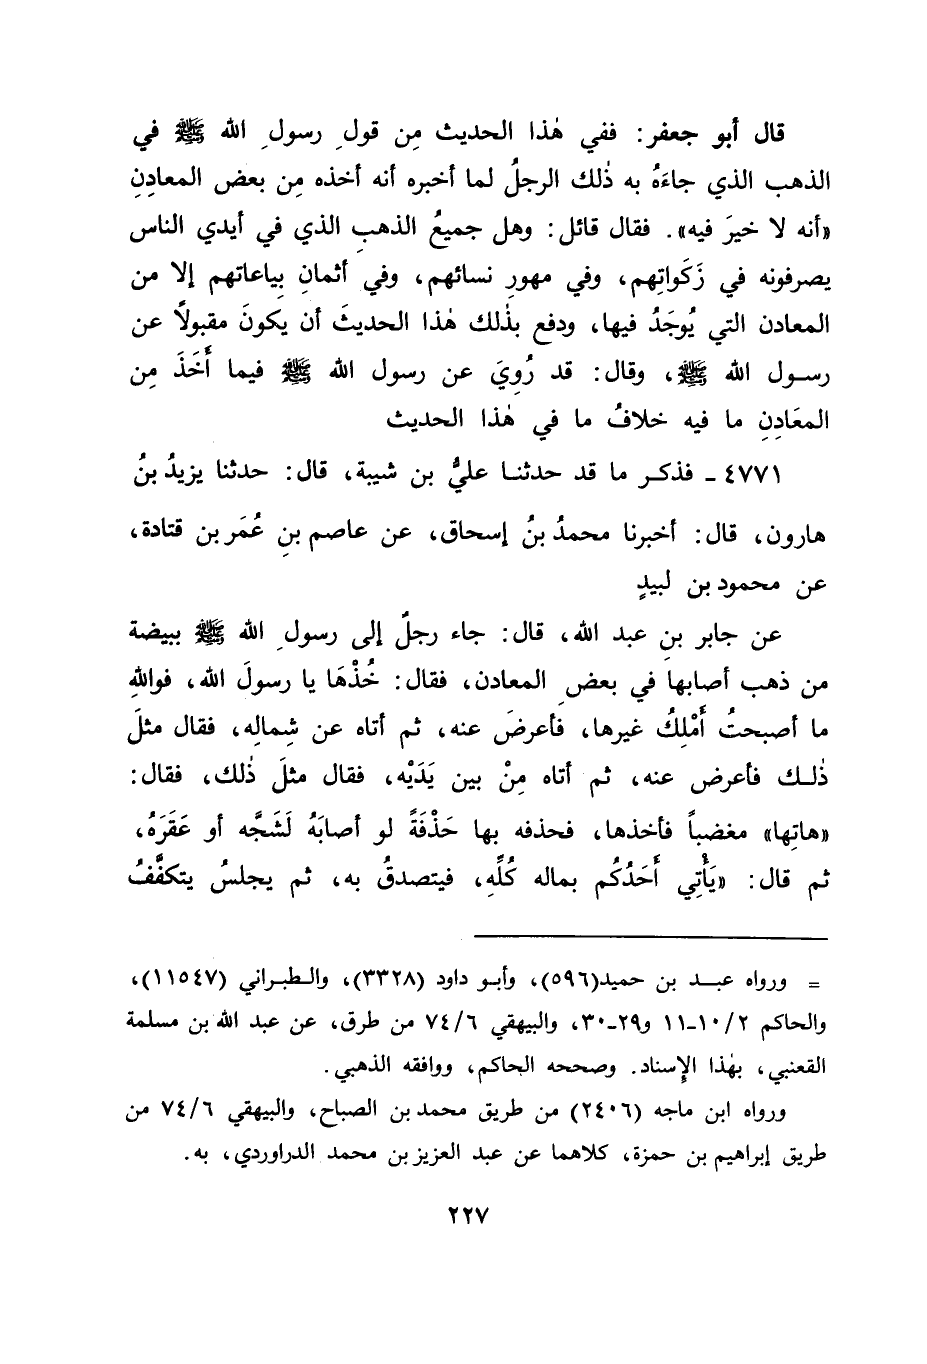 قال أبو جعفر: ففي هٰذا الحديث مِن قولِ رسولِ الله ﷺ في
الذهب الذي جاءَهُ به ذٰلك الرجلُ لما أخبره أنه أخذه مِن بعض المعادِنِ
«أنه لا خيرَ فيه». فقال قائل: وهل جميعُ الذهبِ الذي في أيدي الناس
يصرفونه في زَكَواتِهم، وفي مهورِ نسائهم، وفي أثمانِ بِياعاتهم إلا من
المعادن التي يُوجَدُ فيها، ودفع بذٰلك هٰذا الحديثَ أن يكونَ مقبولاً عن
رسول الله ﷺ، وقال: قد رُوِيَ عن رسول الله ﷺ فيما أَخَذَ مِن
المعَادِنِ ما فيه خلافُ ما في هٰذا الحديث
٤٧٧١ - فذكر ما قد حدثنا عليُّ بن شيبة، قال: حدثنا يزيدُ بنُ
هارون، قال: أخبرنا محمدُ بنُ إسحاق، عن عاصم بنِ عُمَر بن قتادة،
عن محمود بن لبيدٍ
عن جابر بنِ عبد الله، قال: جاء رجلٌ إلى رسولِ الله ﷺ ببيضة
من ذهب أصابها في بعضِ المعادن، فقال: خُذْهَا يا رسولَ الله، فواللهِ
ما أصبحتُ أَمْلِكُ غيرها، فأعرضَ عنه، ثم أتاه عن شِمالِه، فقال مثلَ
ذٰلك فأعرض عنه، ثم أتاه مِنْ بين يَدَيْه، فقال مثلَ ذٰلك، فقال:
«هاتِها» مغضباً فأخذها، فحذفه بها حَذْفَةً لو أصابَهُ لَشَجَّه أو عَقَرَهُ،
ثم قال: «يَأْتِي أَحَدُكُم بماله كُلِّهِ، فيتصدقُ به، ثم يجلسُ يتكفَّفُ
= ورواه عبد بن حميد(٥٩٦)، وأبو داود (٣٣٢٨)، والطبراني (١١٥٤٧)،
والحاكم ٢/١٠-١١ و٢٩-٣٠، والبيهقي ٦/٧٤ من طرق، عن عبد الله بن مسلمة
القعنبي، بهٰذا الإسناد. وصححه الحاكم، ووافقه الذهبي.
ورواه ابن ماجه (٢٤٠٦) من طريق محمد بن الصباح، والبيهقي ٦/٧٤ من
طريق إبراهيم بن حمزة، كلاهما عن عبد العزيز بن محمد الدراوردي، به.
٢٢٧